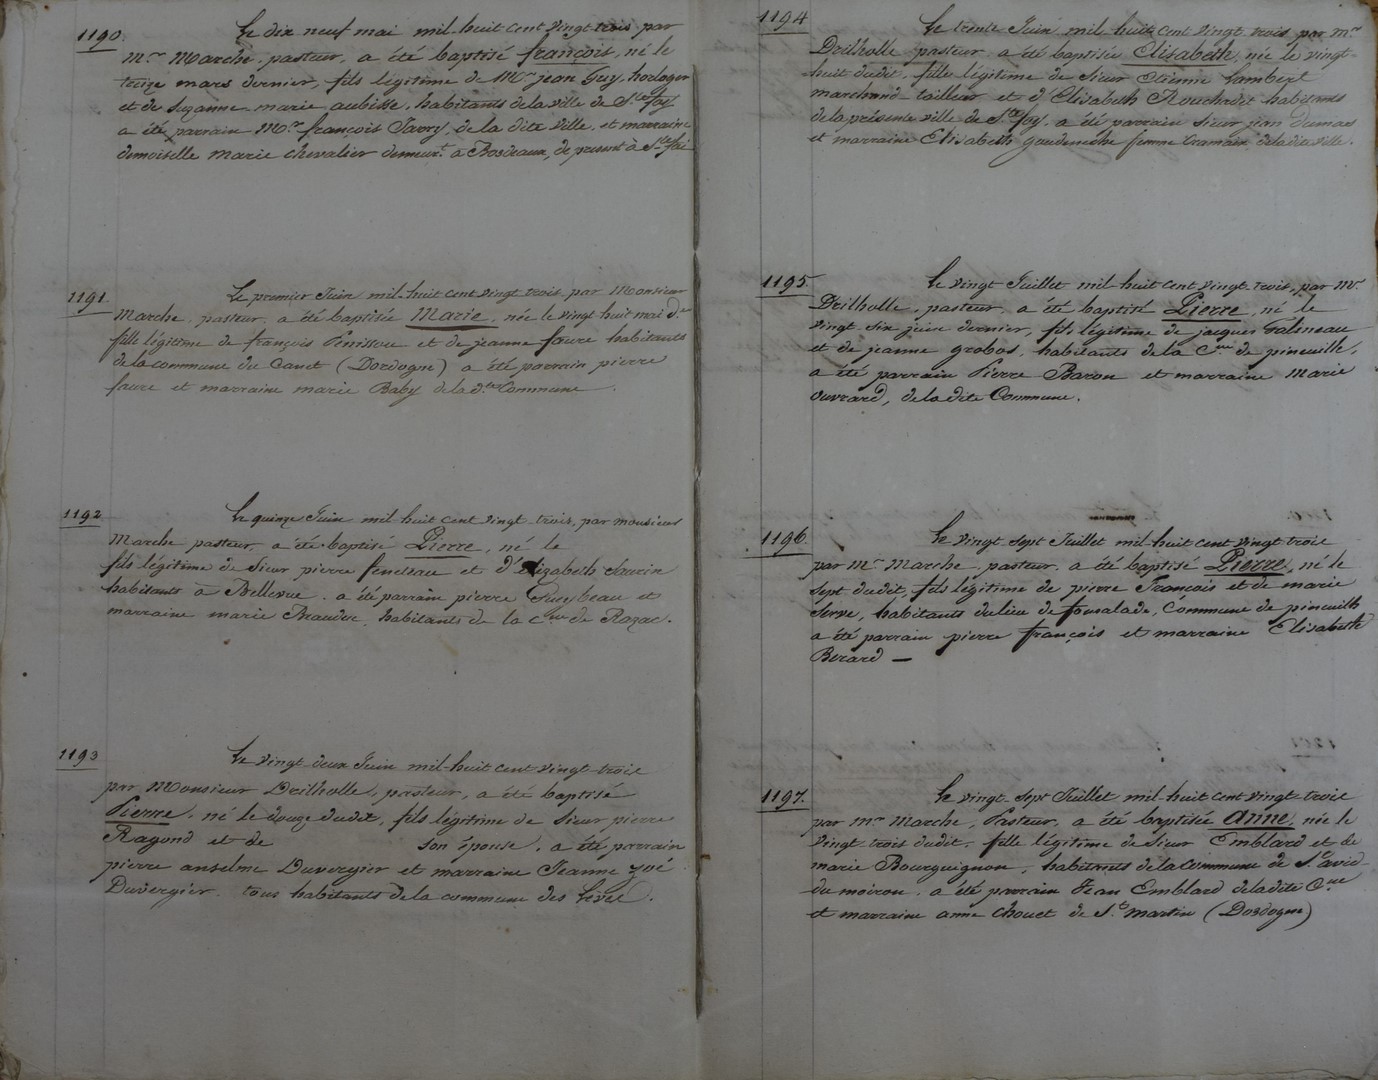 1190.
Le dix neuf mai mil-huit cent vingt-trois, par
mr. Marche, pasteur, a été baptisé françois, né le
treize mars dernier, fils légitime de Mr. jean Guy, horloger
et de Suzanne-marie aubisse, habitants de la ville de Ste foy
a été parrain Mr. françois Javry, de la dite ville, et marraine
demoiselle marie chevalier demeurt. à Bordeaux, de présent à Ste foi
1191.
Le premier Juin mil-huit cent vingt trois, par Monsieur
Marche, pasteur, a été baptisée Marie, née le vingt huit mai de
fille légitime de françois Pénissou et de jeanne faure habitants
de la commune du Canet (Dordogne) a été parrain pierre
faure et marraine marie Baby de la dte Commune.
1192.
Le quinze Juin mil-huit cent vingt-trois, par monsieur
Marche pasteur, a été baptisé Pierre, né le
fils légitime de Sieur pierre feneteau et d'Elizabeth Saurin
habitants à Bellevue. a été parrain pierre et
marraine marie Brauder, habitants de la cne de Razac.
1193
Le vingt-deux Juin mil-huit cent vingt-trois
par Monsieur Drilholle, pasteur, a été baptisé
Pierre, né le douze dudit, fils légitime de Sieur pierre
Ragond et de son épouse, a été parrain
pierre anselme Duvergier et marraine Jeanne
Duvergier, tous habitants de la commune des Lèves.
1194
Le trente Juin mil huit cent vingt trois, par mr
Drilholle pasteur, a été baptisée Elisabeth, née le vingt-
huit dudit, fille légitime de Sieur Etienne Lambert
marchand-tailleur et d'Elisabeth Rouchadet habitants
de la présente ville de Ste foy, a été parrain Sieur jean Dumas
et marraine Elisabeth femme de la dite ville.
1195.
Le vingt Juillet mil-huit cent vingt-trois, par Mr
Drilholle, pasteur, a été baptisé Pierre, né le
vingt six juin dernier, fils légitime de jacques Galineau
et de jeanne grobos, habitants de la Cne de pineuilh,
a été parrain Pierre Baron et marraine Marie
Ouvrard, de la dite Commune.
1196
Le vingt sept Juillet mil-huit cent vingt trois
par Mr Marche, pasteur, a été baptisé Pierre, né le
Sept dudit, fils légitime de pierre François et de marie
Serve, habitants du lieu de fonsalade, Commune de pineuilh
a été parrain pierre françois et marraine Elisabeth
Berard —
1197.
Le vingt-sept Juillet mil-huit cent vingt-trois
par mr Marche, Pasteur, a été baptisée anne, née le
vingt trois dudit, fille légitime de Sieur Emblard et de
marie Bourguignon, habitants de la commune de St avid
du moiron, a été parrain Jean Emblard de la dite Cne
et marraine anne Chouet de St. Martin (Dordogne)